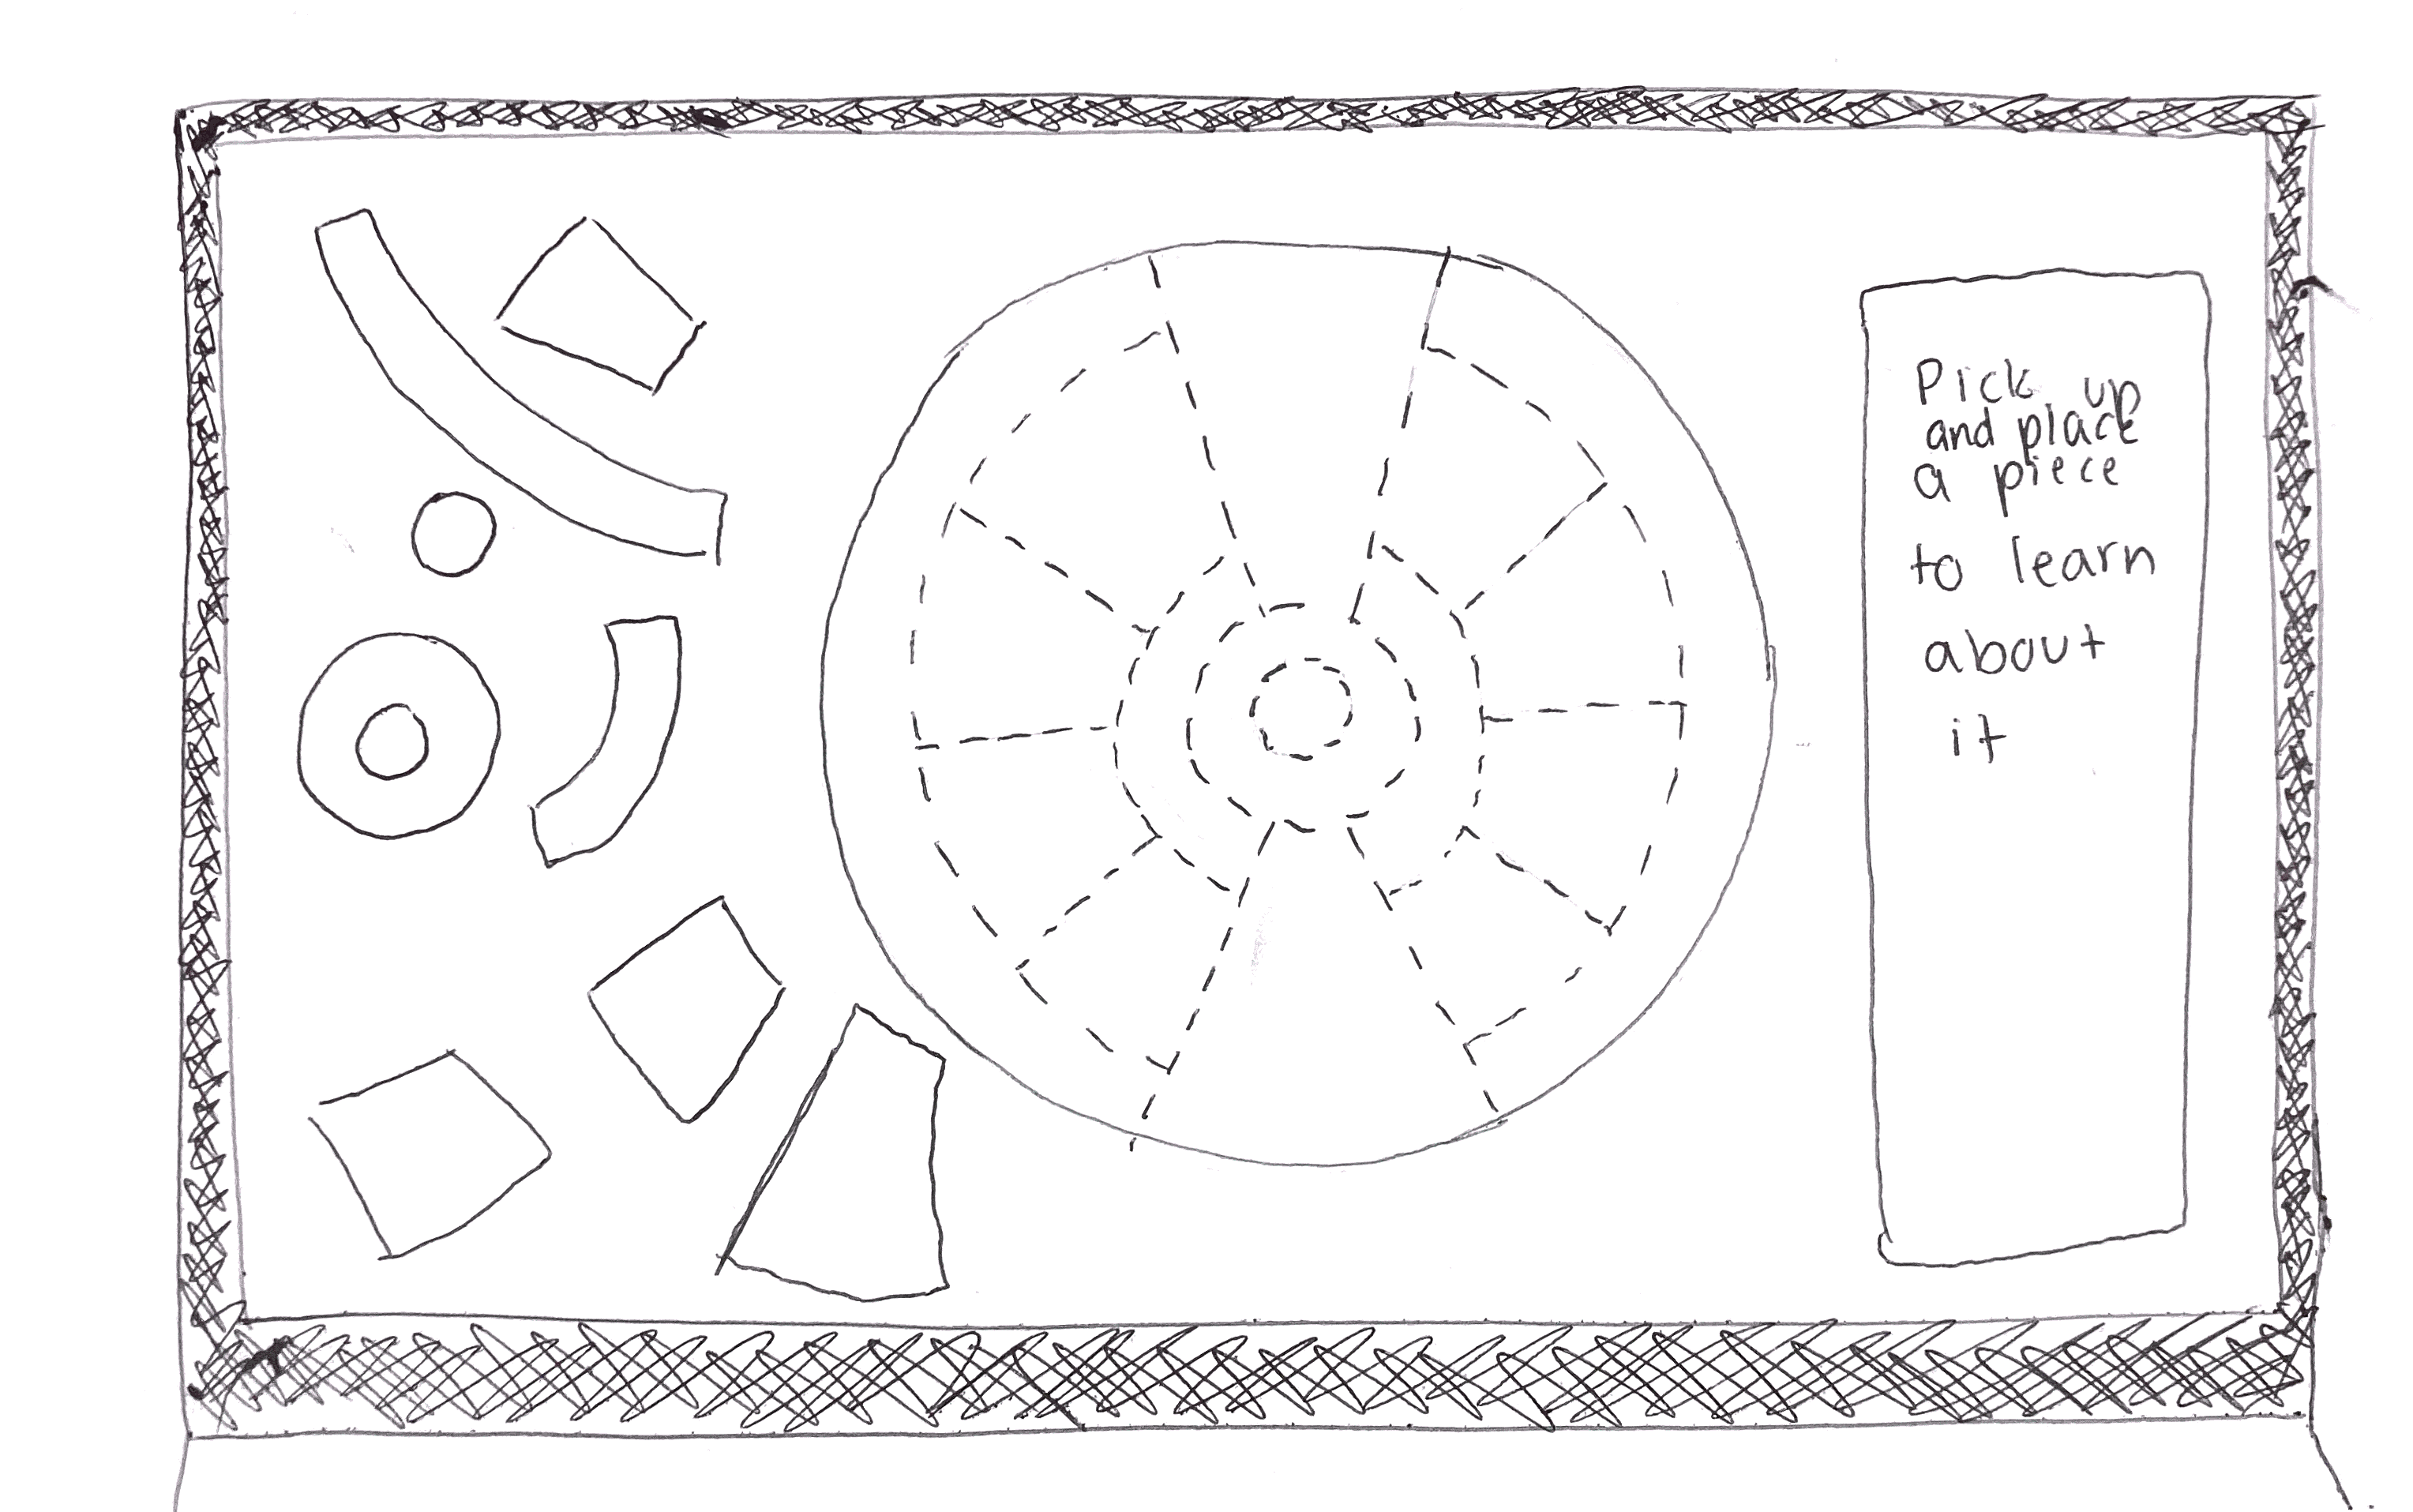 Pick up
and place
a piece
to learn
about
it